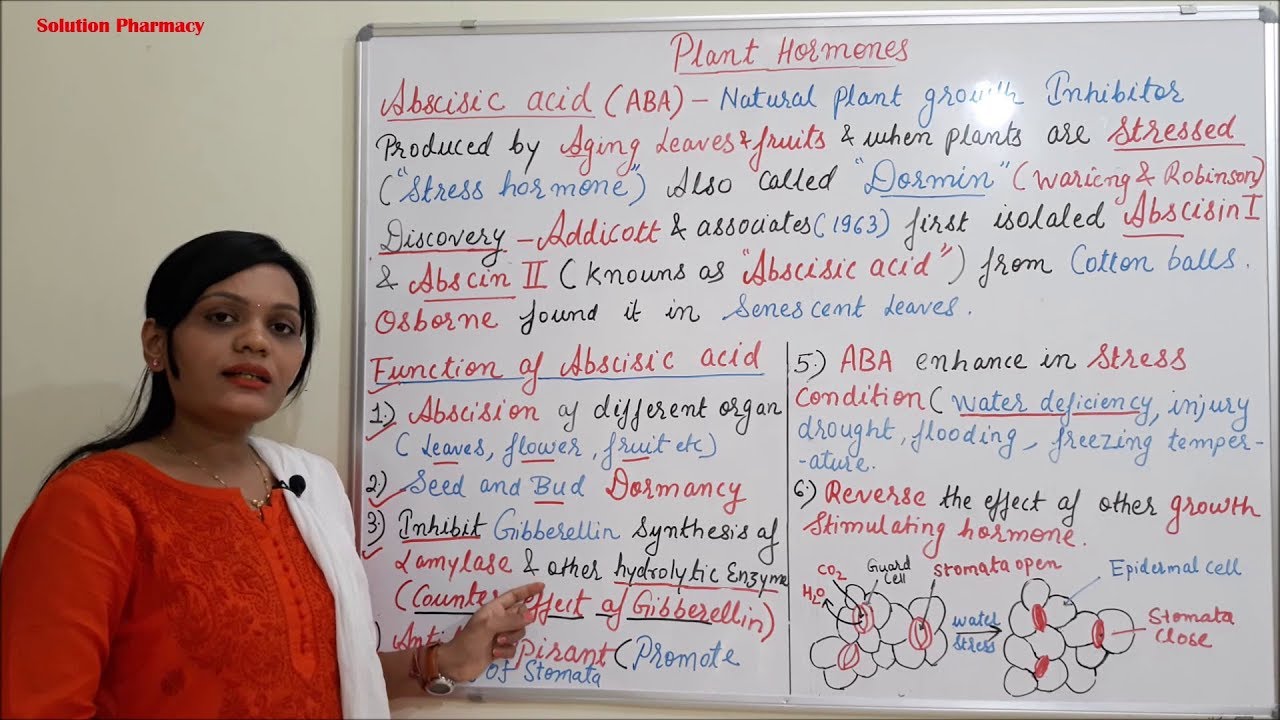 Solution Pharmacy
Plant Hormones
Abscisic acid (ABA) – Natural plant growth Inhibitor
Produced by Aging Leaves & fruits & when plants are Stressed
("Stress hormone") Also called "Dormin" (Waricng & Robinson)
Discovery – Addicott & associates (1963) first isolaled Abscisin I
& Abscin II (knouns as "Abscisic acid") from Cotton balls.
Osborne found it in Senescent Leaves.
Function of Abscisic acid
1.) Abscision of different organ
(Leaves, flower, fruit etc)
2.) Seed and Bud Dormancy
3) Inhibit Gibberellin synthesis of
Lamylase & other hydrolytic Enzyme
(Counter effect of Gibberellin)
pirant (Promote
of Stomata
5.) ABA enhance in Stress
Condition (Water deficiency, injury
drought, flooding, freezing temper-
-ature.
6.) Reverse the effect of other growth
Stimulating hormone.
CO2
H2O
Guard
Cell
Stomata open
water
stress
Epidermal cell
Stomata
Close